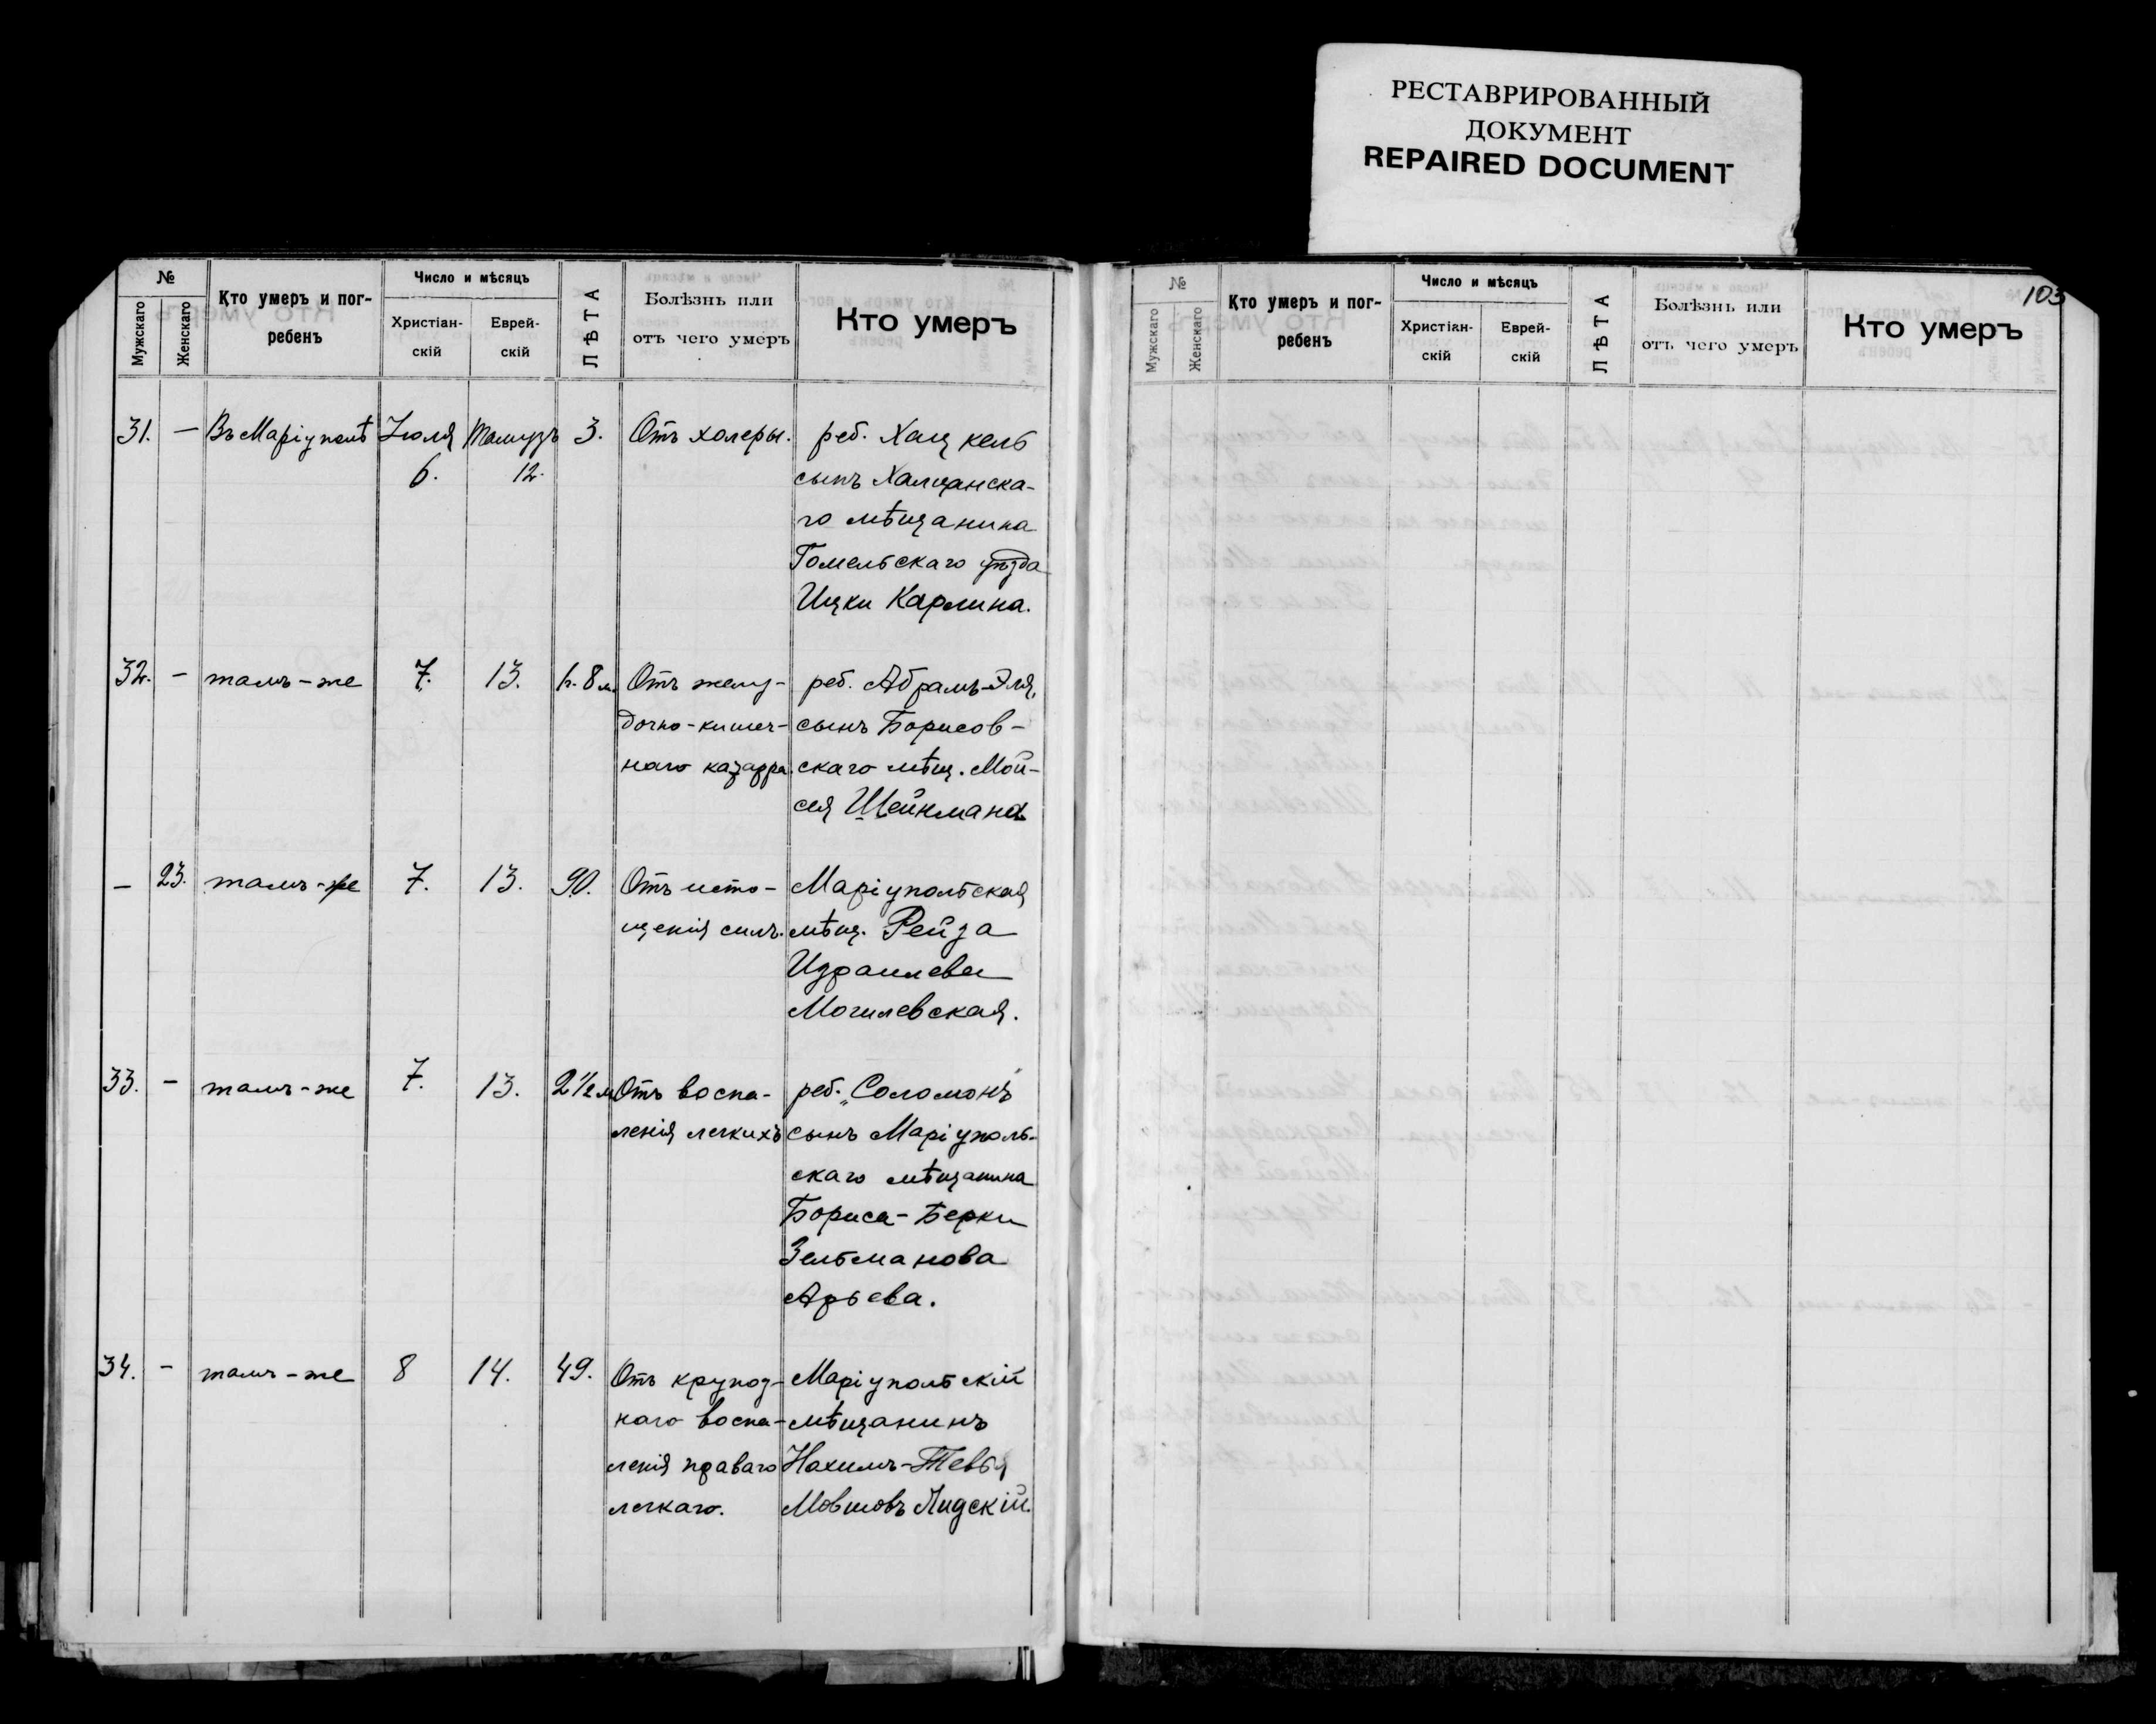 РЕСТАВРИРОВАННЫЙ
ДОКУМЕНТ
REPAIRED DOCUMENT
№
Мужскаго
Женскаго
Кто умеръ и пог-
ребенъ
Число и мѣсяцъ
Христіан-
скій
Еврей-
скій
ЛѢТА
Болѣзнь или
отъ чего умеръ
Кто умеръ
31. — Въ Маріуполѣ Іюля 6. Тамузъ 12. 3.
Отъ холеры.
реб. Хацкель
сынъ Халчанска-
го мѣщанина
Гомельскаго уѣзда
Ицки Карлина.
32. — тамъ-же 7. 13. 1г. 8м.
Отъ желу-
дочно-кишеч-
наго катарра.
реб. Абрамъ-Эля,
сынъ Борисов-
скаго мѣщ. Мой-
сея Шейнмана
— 23. тамъ-же 7. 13. 90.
Отъ исто-
щенія силъ.
Маріупольская
мѣщ. Рейза
Израилева
Могилевская.
33. — тамъ-же 7. 13. 2½ м.
Отъ воспа-
ленія легкихъ
реб. „Соломонъ"
сынъ Маріуполь-
скаго мѣщанина
Бориса-Берки
Зельманова
Арьева.
34. — тамъ-же 8 14. 49.
Отъ крупоз-
наго воспа-
ленія праваго
легкаго.
Маріупольскій
мѣщанинъ
Нахимъ-Тевья
Мовшовъ Лидскій.
103
№
Мужскаго
Женскаго
Кто умеръ и пог-
ребенъ
Число и мѣсяцъ
Христіан-
скій
Еврей-
скій
ЛѢТА
Болѣзнь или
отъ чего умеръ
Кто умеръ